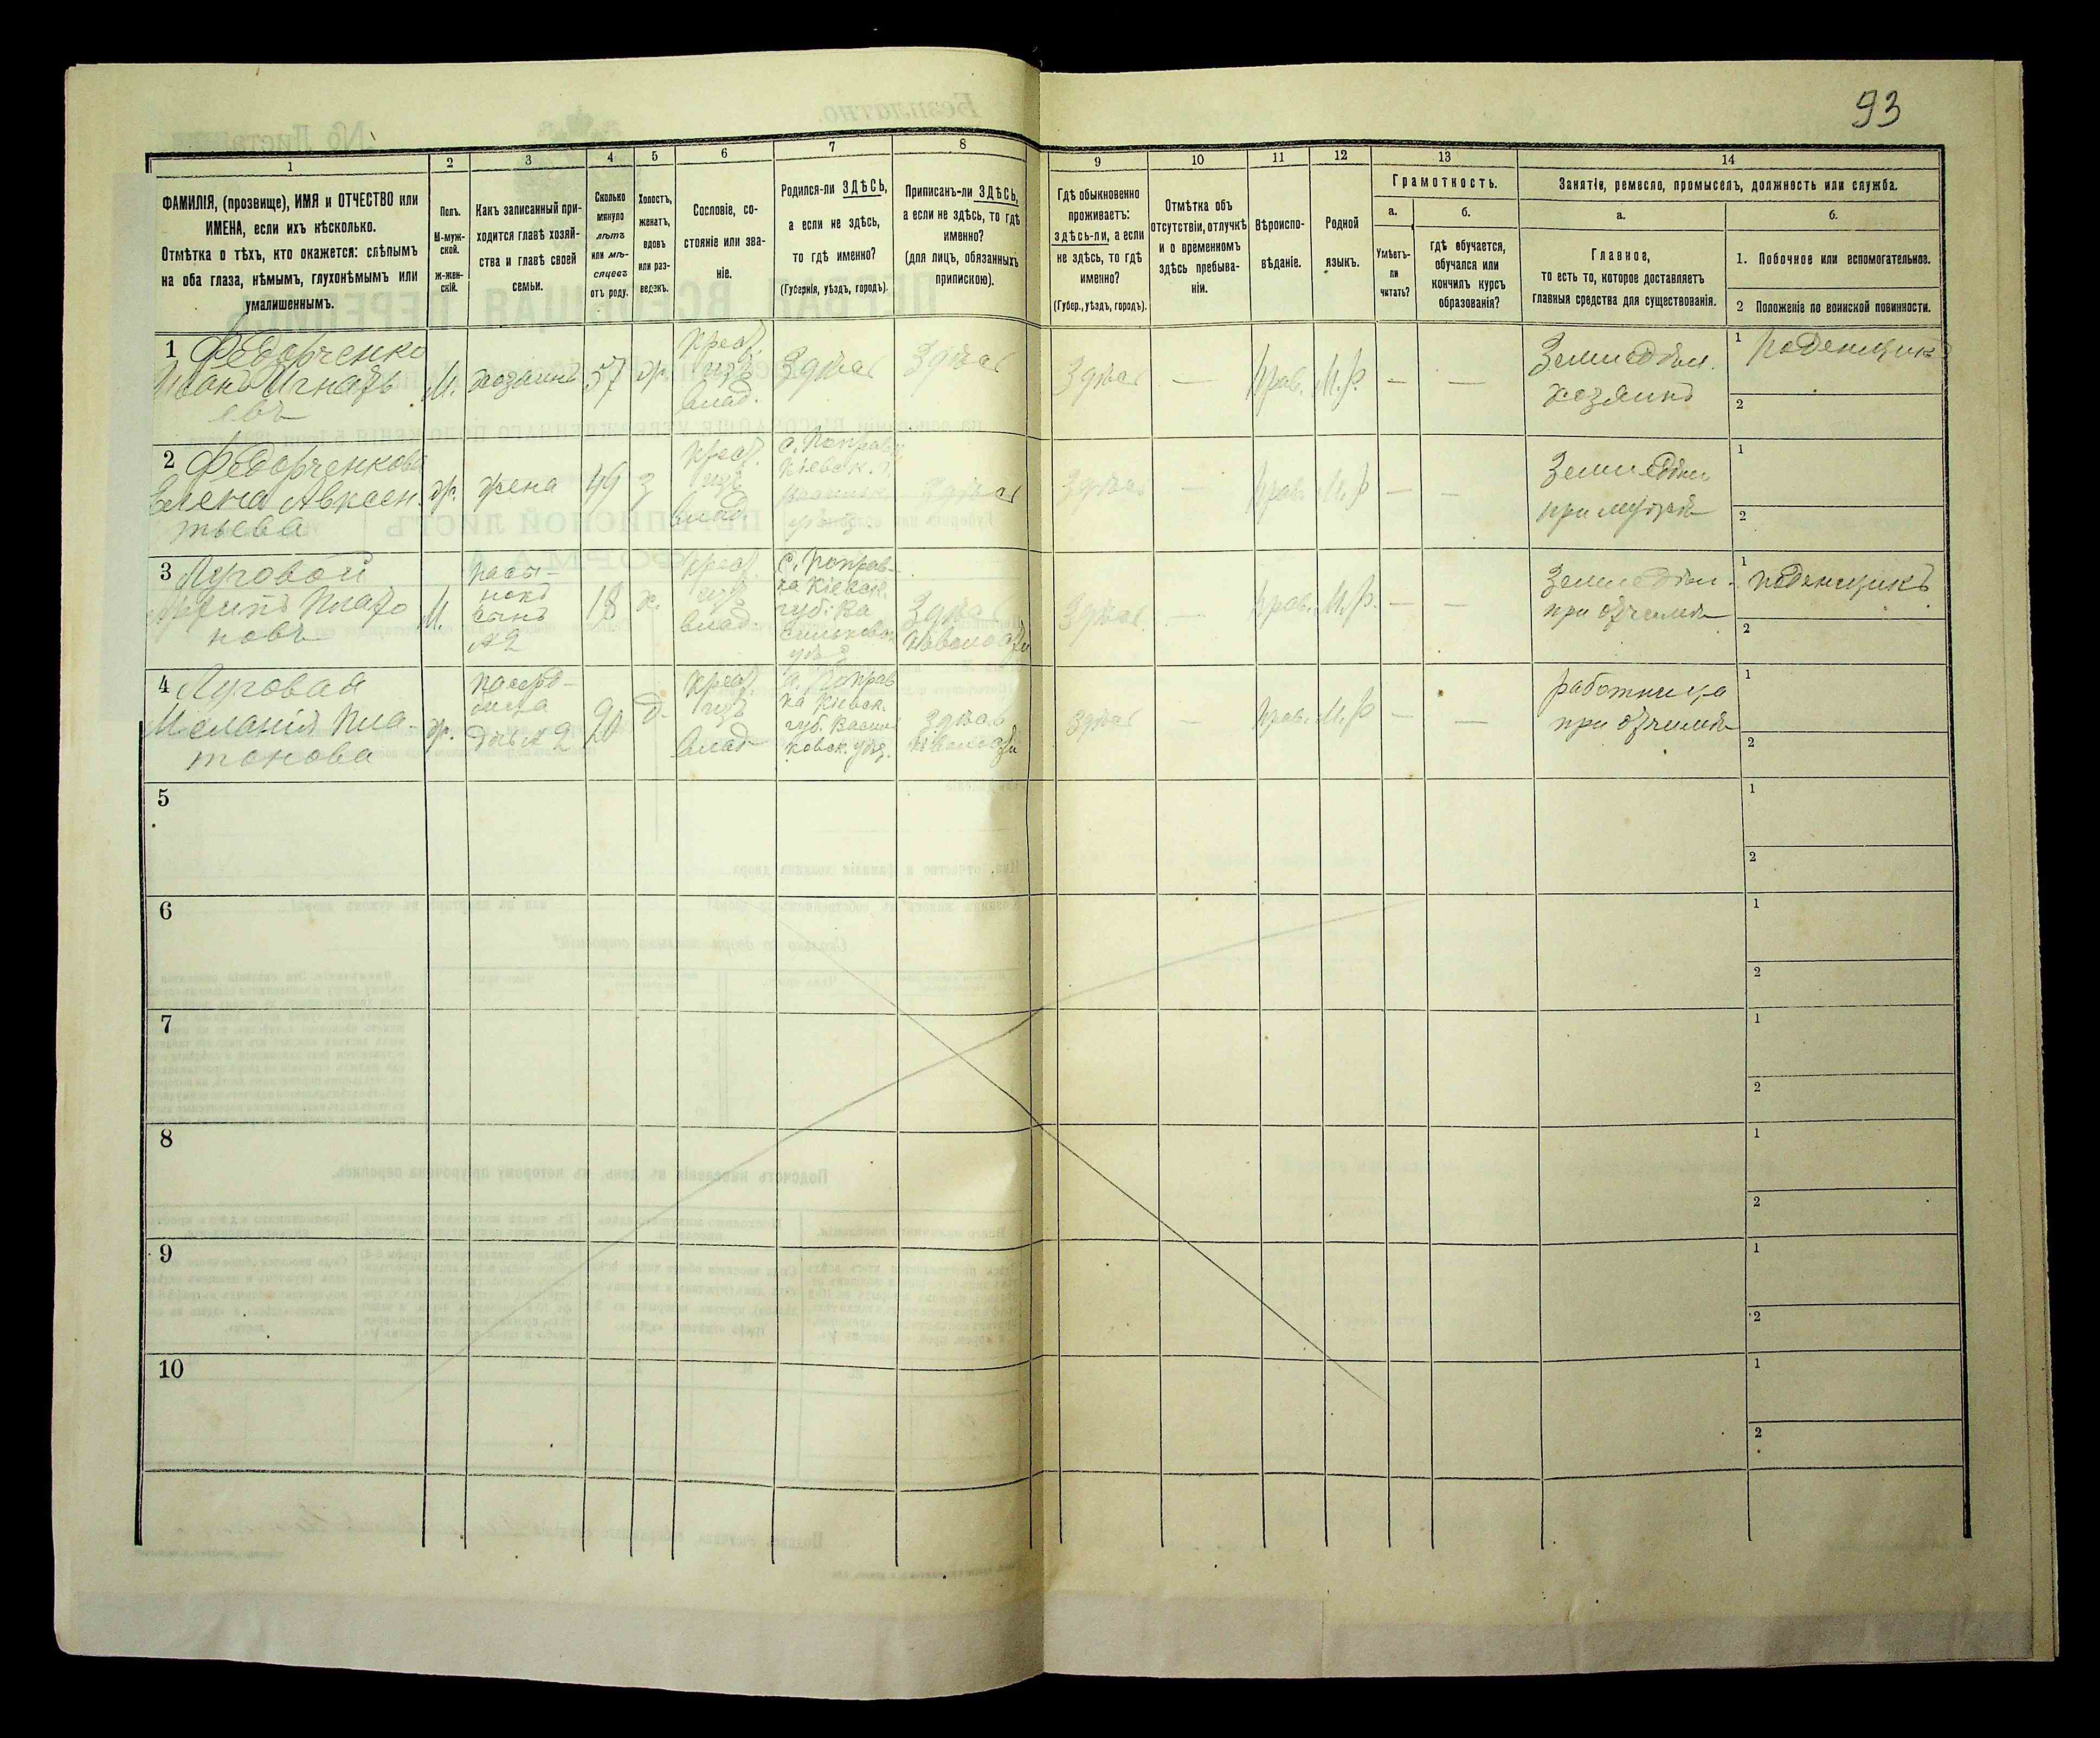 93
1
2
3
4
5
6
7
8
9
10
11
12
13
14
ФАМИЛІЯ, (прозвище), ИМЯ и ОТЧЕСТВО или
ИМЕНА, если ихъ нѣсколько.
Отмѣтка о тѣхъ, кто окажется: слѣпымъ
на оба глаза, нѣмымъ, глухонѣмымъ или
умалишеннымъ.
Полъ.
М-муж-
ской.
ж-жен-
скій.
Какъ записанный при-
ходится главѣ хозяй-
ства и главѣ своей
семьи.
Сколько
минуло
лѣтъ
или мѣ-
сяцевъ
отъ роду.
Холостъ,
женатъ,
вдовъ
или раз-
веденъ.
Сословіе, со-
стояніе или зва-
ніе.
Родился-ли ЗДѢСЬ,
а если не здѣсь,
то гдѣ именно?
(Губернія, уѣздъ, городъ).
Приписанъ-ли ЗДѢСЬ,
а если не здѣсь, то гдѣ
именно?
(для лицъ, обязанныхъ
припискою).
Гдѣ обыкновенно
проживаетъ:
здѣсь-ли, а если
не здѣсь, то гдѣ
именно?
(Губер., уѣздъ, городъ).
Отмѣтка объ
отсутствіи, отлучкѣ
и о временномъ
здѣсь пребыва-
ніи.
Вѣроиспо-
вѣданіе.
Родной
языкъ.
Грамотность.
а.
Умѣетъ-
ли
читать?
б.
гдѣ обучается,
обучался или
кончилъ курсъ
образованія?
Занятіе, ремесло, промыселъ, должность или служба.
а.
Главное,
то есть то, которое доставляетъ
главныя средства для существованія.
б.
1. Побочное или вспомогательное.
2 Положеніе по воинской повинности.
1 Федорченко
Иванъ Игнатъ
евъ
М.
хозяинъ
57
ж.
Крест.
изъ
влад.
Здѣсь
Здѣсь
Здѣсь
—
Прав.
М.р.
—
—
Земледѣл.
хозяинъ
1 Поденщикъ
2
2 Федорченкова
Елена Авксен
тьева
ж.
жена
49
з
Крест.
изъ
влад.
с. Поправка
Кіевск. г.
Здѣсь
Здѣсь
Прав.
М.р
—
—
Земледѣл
при мужѣ
1
2
3 Луговой
Плато
новъ
М.
пасы-
нокъ
сынъ
№2
18
х.
Крест.
изъ
влад.
С. Поправ-
ка Кіевск.
губ. Ва
сильковск
уѣз.
Здѣсь
Здѣсь
—
Прав.
М.р.
—
—
Земледѣл.
при отчимѣ
1 поденщикъ
2
4 Луговая
Меланія Пла-
тонова
ж.
падче-
рица
дчь № 2
20
д.
Крест.
изъ
влад
с. Поправ
ка Кіевск.
губ. Васил
ковск. уѣзд.
Здѣсь
Здѣсь
—
Прав.
М.р
—
—
работница
при отчимѣ
1
2
5
1
2
6
1
2
7
1
2
8
1
2
9
1
2
10
1
2